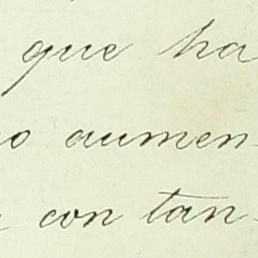 que ha
aumen-
con tan-